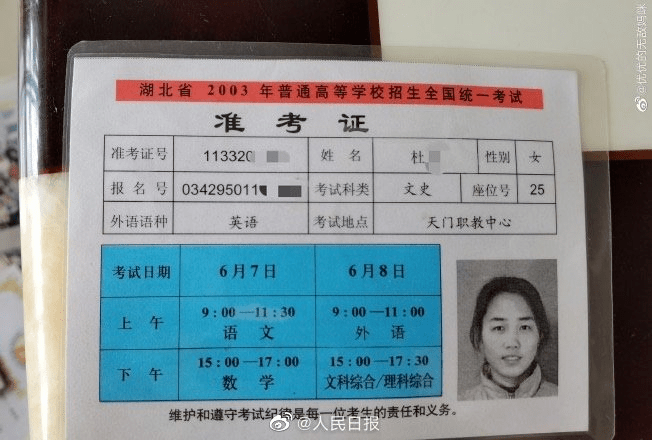 湖北省 2003 年普通高等学校招生全国统一考试
准考证
准考证号 113320 姓名 杜 性别 女
报名号 034295011 考试科类 文史 座位号 25
外语语种 英语 考试地点 天门职教中心
考试日期 6月7日 6月8日
上午 9:00—11:30 语文 9:00—11:00 外语
下午 15:00—17:00 数学 15:00—17:30 文科综合/理科综合
维护和遵守考试纪律是每一位考生的责任和义务。
@人民日报